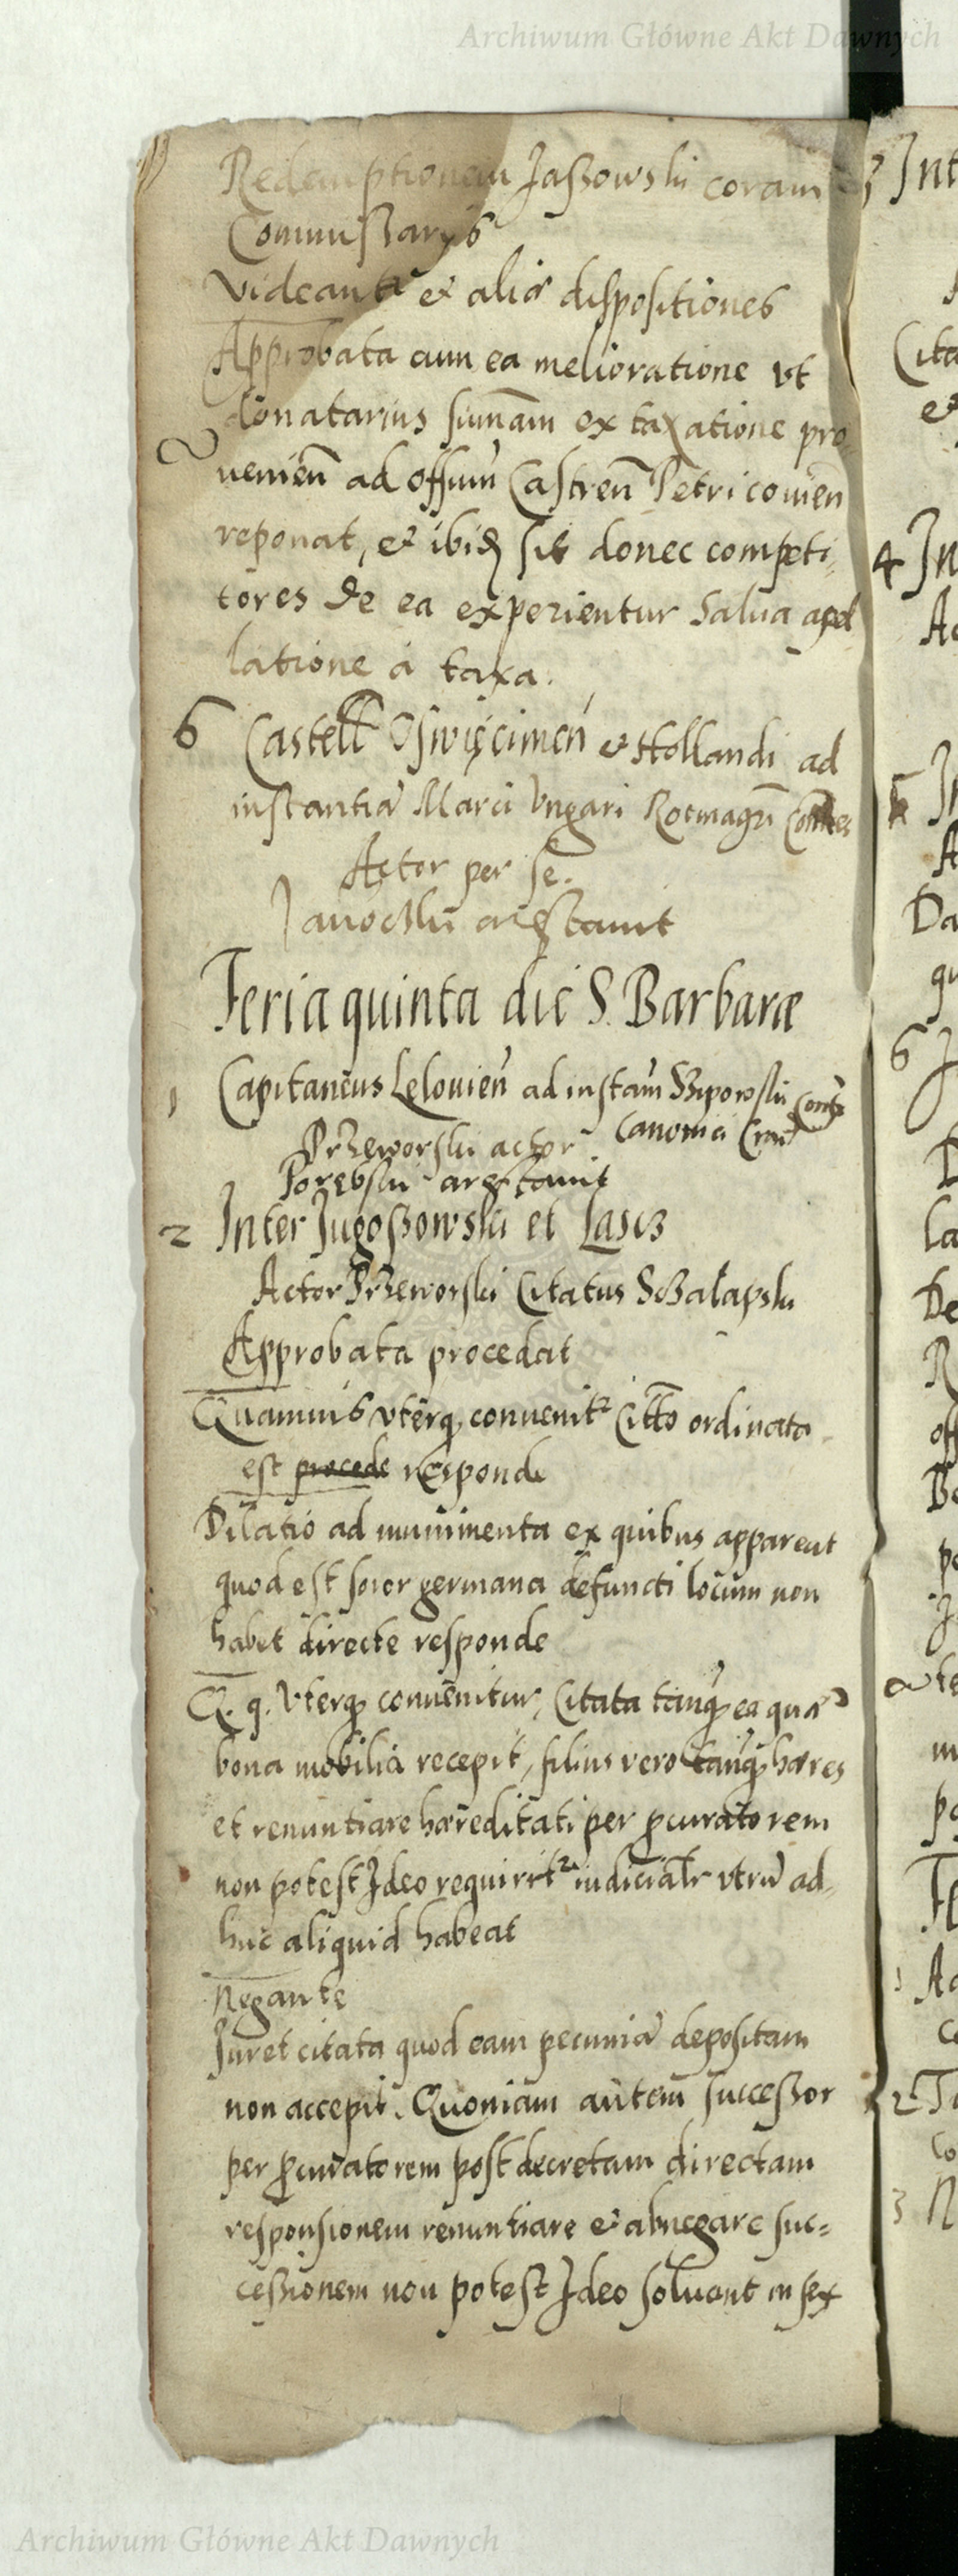 Archiwum Główne Akt Dawnych
Redemptionem Jaßowski coram
Commißarys
Videant et alia dispositiones
Approbata cum ea melioratione vt
donatarius sumam ex taxatione pro
uenien ad offium Castren Petricouien
reponat, et ibid sit donec competi
tores de ea experientur salua apel
latione a taxa.
6 Castell Oswięcimen et Hollandi ad
instantia Marci Vngari Rotmagri
Actor per se.
Janocski arestauit
Feria quinta die S. Barbaræ
1 Capitaneus Lelouien ad instam
Canonici Crac
Przeworski actor
Porębski arestauit
2 Inter Jugoßowski et Lascz
Actor Przeworski Citatus Sczalapski
Approbata procedat
Quamuis vterq conuenit Citto ordinata
est procede responde
Dilatio ad munimenta ex quibus apparent
quod est soror germana defuncti locum non
habet directe responde
Q. q. Vterq conuenitur, Citata tanq ea qua
bona mobilia recepit, filius vero tanq hæres
et renuntiare hæreditati per pcuratorem
non potest Ideo requirit iudicialr vtru ad
huc aliquid habeat
Negante
Juret citata quod eam pecunia depositam
non accepit. Quoniam autem succeßor
per pcuratorem post decretam directam
responsionem renuntiare et abnegare suc=
ceßionem non potest Ideo soluant in sex
Archiwum Główne Akt Dawnych